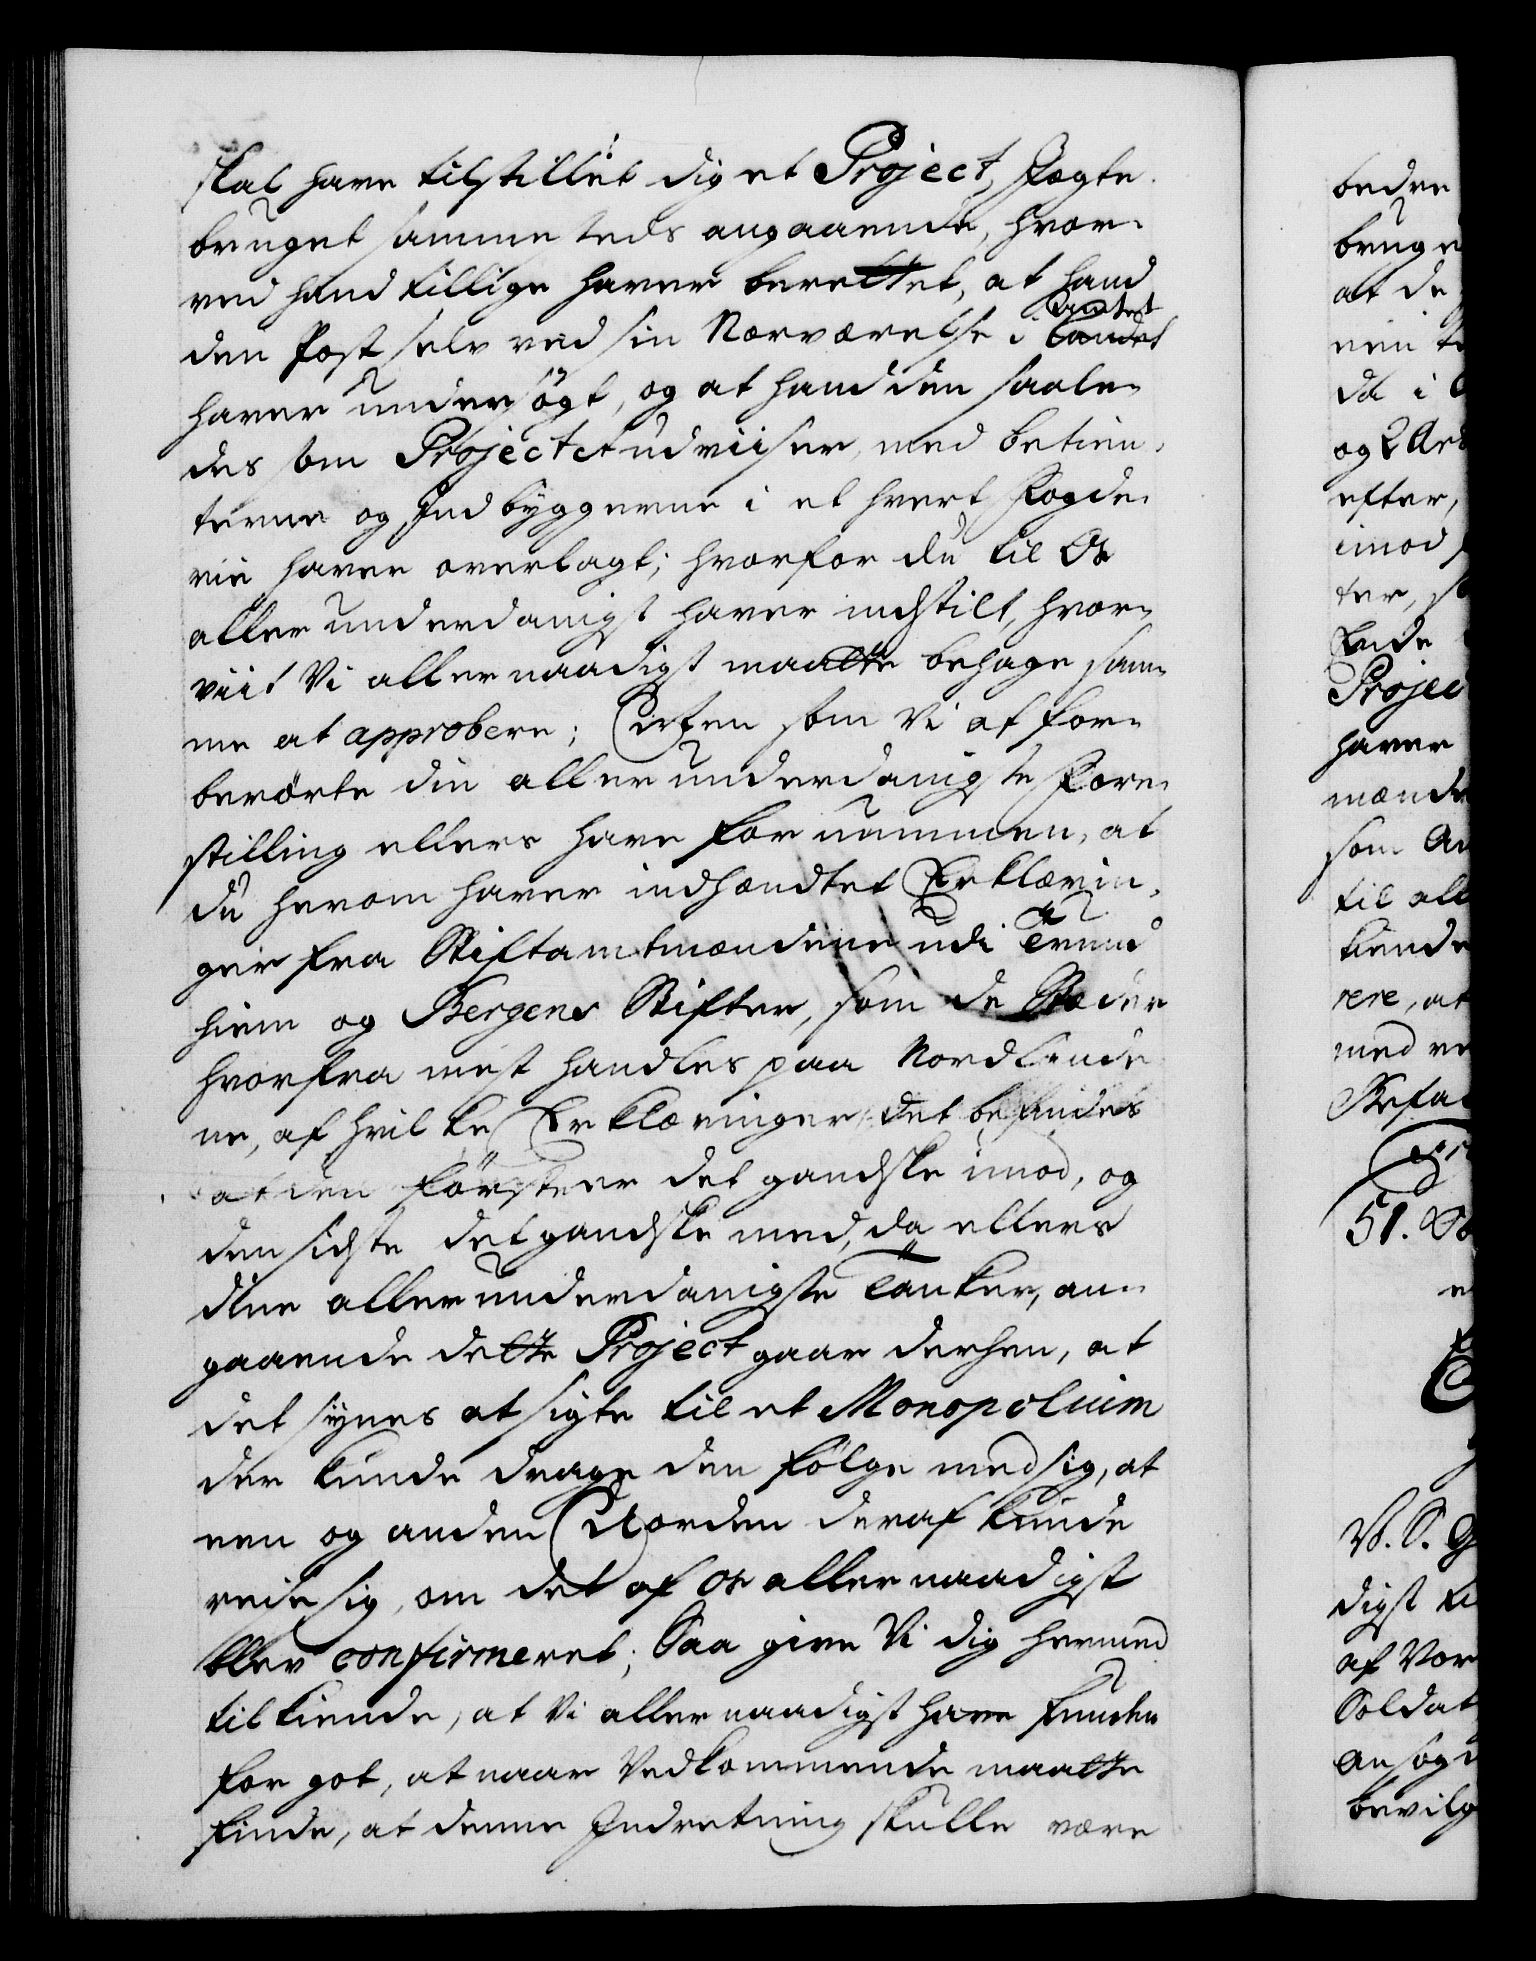 skal have tilstillet dig et Project, Jægte
bruget samme steds angaaende, hvor-
ved hand tillige haver berettet, at hand
den Post selv ved sin Nærværelse i Landet Amtet
haver undersögt, og at hand den saale-
des som Projectet udviiser, med betien-
terne og Indbyggerne i et hvert Fogde-
rie haver overlagt; hvorfor du til Os
allerunderdanigst haver indstilt, hvor-
vit Vi allernaadigst maatte behage sam-
me at approbere; Men som Vi af for-
berørte din allerunderdanigste Fore-
stilling ellers have fornummen, at
du herom haver indhændtet Erklærin-
ger fra Stiftamtmændene udi Trund
hiem og Bergens Stifter, som de Stæder
hvorfra mest handles paa Nordlende
ne, af hvilke Erklæringer det befindes
at den förste er det gandske imod, og
den sidste det gandske med, da ellers
dine allerunderdanigste Tanker, an-
gaaende dette Project gaar derhen, at
det synes at sigte til et Monopolium
der kunde drage den følge med sig, at
een og anden Uorden deraf kunde
reise sig, om det af Os allernaadigst
blev confirmeret; Saa give Vi dig hermed
tilkiende, at Vi allernaadigst have funden
for got, at naar Vedkommende maatte
finde, at denne Indretning skulle være
bedre
bruge
at de
da i
og 2 Ard
efter,
imod
ter,
Ende
Projec
haver
mænde
som
til all
kiende
rere, at
med
Befal
51.
digst
af Vor
Soldat
ansøg
bevilg